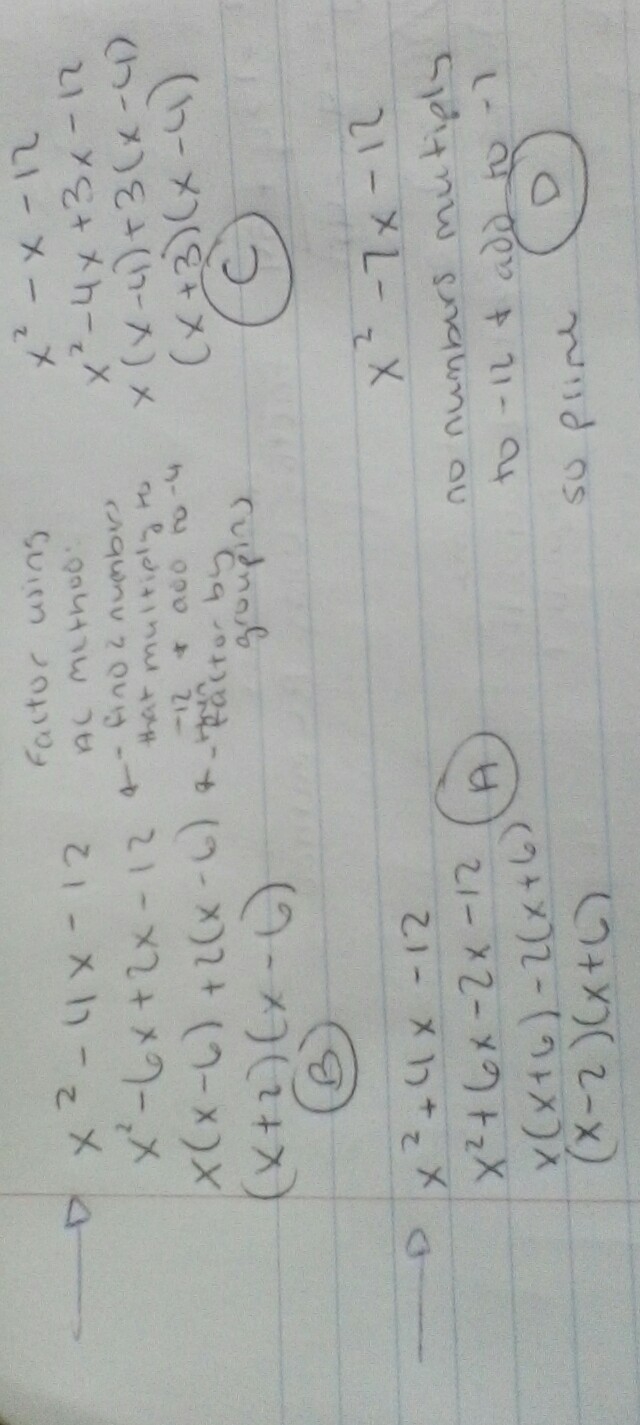 x² - 4x - 12
x² - 6x + 2x - 12
x(x - 6) + 2(x - 6)
(x + 2)(x - 6)
B
Factor using
AC method.
← find 2 numbers
that multiply to
-12 & add to -4
← factor by
grouping
x² - x - 12
x² - 4x + 3x - 12
x(x - 4) + 3(x - 4)
(x + 3)(x - 4)
C
x² + 4x - 12
x² + 6x - 2x - 12
A
x(x + 6) - 2(x + 6)
(x - 2)(x + 6)
x² - 7x - 12
no numbers multiply
to -12 & add to -7
so prime
D